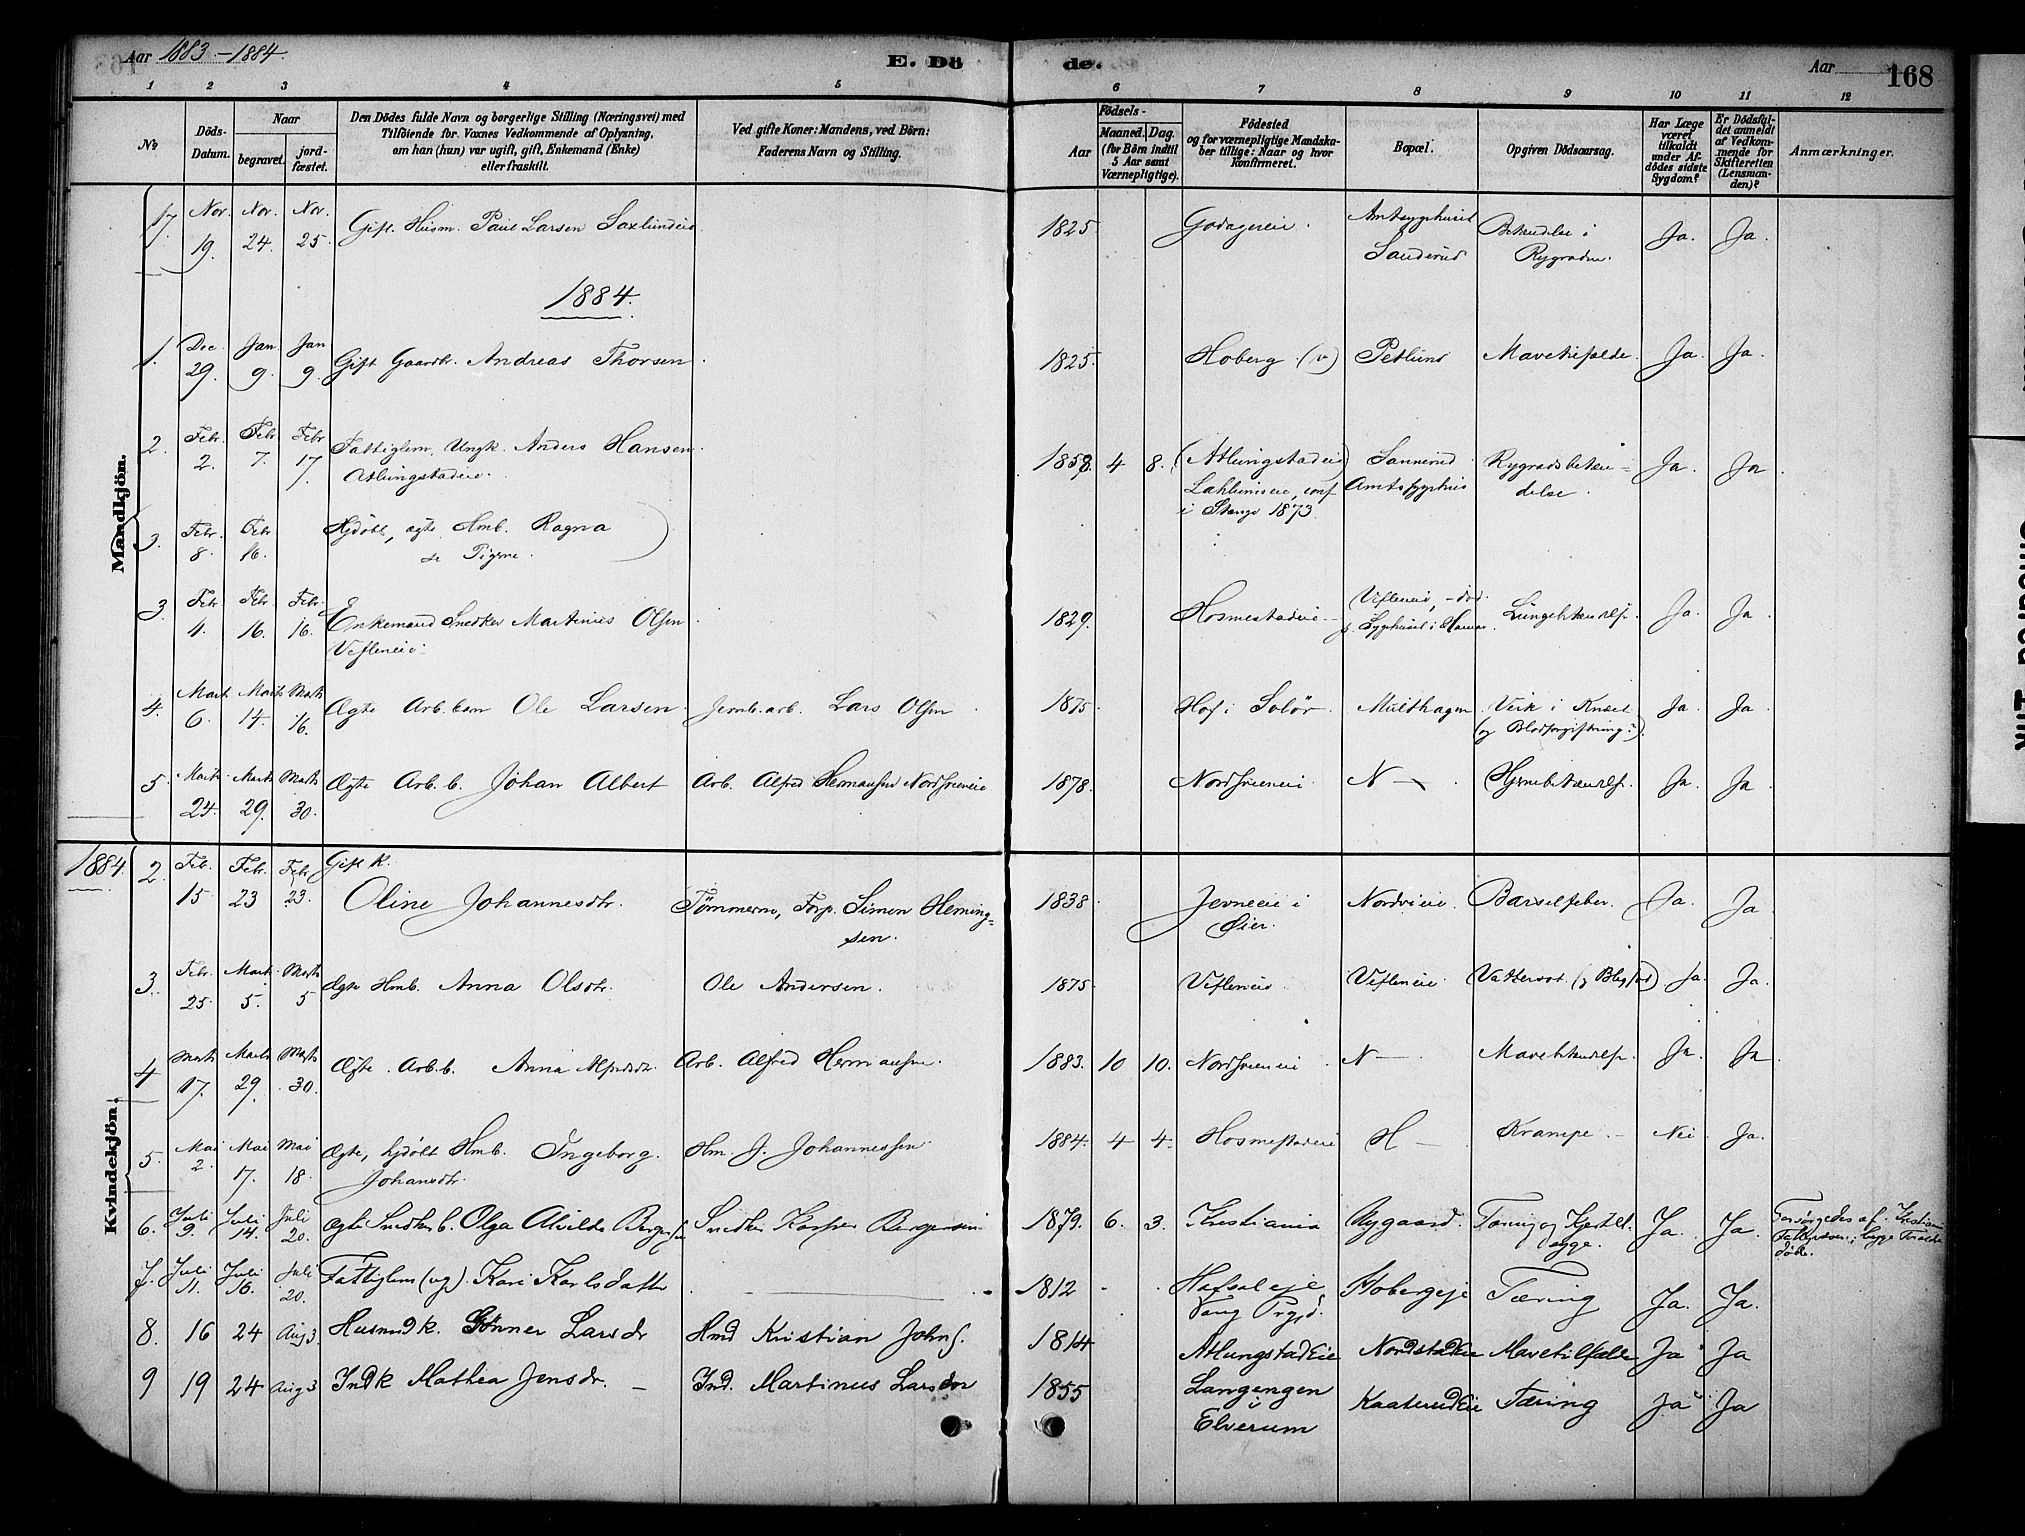 Aar 1883-1884.
E. Dö
de.
Aar
168
1 2 3 4 5 6 7 8 9 10 11 12
No
Döds-Datum.
Naar
begravet.
jordfæstet.
Den Dödes fulde Navn og borgerlige Stilling (Næringsvei) med
Tilföiende for Voxnes Vedkommende af Oplysning,
om han (hun) var ugift, gift, Enkemand (Enke)
eller fraskilt.
Ved gifte Koner: Mandens, ved Börn:
Faderens Navn og Stilling.
Födsels-
Aar
Maaned. Dag.
(for Börn indtil
5 Aar samt
Værnepligtige).
Födested
og for værnepligtige Mandskaber tillige: Naar og hvor
konfirmeret.
Bopæl.
Opgiven Dödsaarsag.
Har Læge
været
tilkaldt
under Afdödes sidste
Sygdom?
Er Dödsfaldet anmeldt
af Vedkommende for
Skifteretten
(Lensmanden)?
Anmærkninger.
Mandkjön.
17. Nov. 19. Nov. 24. Nov. 25. Gift. Husm. Paul Larsen 1825. Amtssyghuset Sanderud Rygraden. Ja. Ja.
1884.
1. Dec. 29. Jan 9. Jan 9. Gift Gaardbr. Andreas Thorsen 1825. Hoberg (v) Mavetilfælde. Ja. Ja.
2. Febr. 2. Febr 7. Febr 17. Fattiglem, Ungk. Anders Hansen 1858. 4 8. (Atlungstadeie) Rygradsbetændelse. Ja. Ja
Atlungstadeie. conf
i Stange 1873.
3. Febr. 8. Febr 16. Hjdöbt, ægte Hmb. Ragna
se Pigerne.
3. Febr 4. Febr 16. Febr. 16. Enkemand Snedker Martinus Olsen 1829. Hosmestadeie Ja. Ja.
Vefleneie.
4. Marts 6. Marts 14. Marts 16. Ægte Arb.barn Ole Larsen Jernb.arb. Lars Olsen 1875 Hof i Solör. Verk i Knæet Ja. Ja.
(og Blodforgiftning?)
5. Marts 24. Marts 29. Marts 30. Ægte Arb. b. Johan Albert Arb. Alfred Hermansen 1878. N— Ja. Ja.
Kvindekjön.
1884. 2. Feb. 15 Febr. 23 Febr 23. Gift K.
Oline Johannesdtr. Simon Hemingsen. 1838 Øier. Barselfeber. Ja. Ja.
3. Febr. 25. Marts 5. Marts 5 Ægte Hmb. Anna Olsdtr. Ole Andersen. 1875 Vefleneie. Vefleneie. Vattersot Ja. Ja.
4 Marts 17. Marts 29. Marts 30. Ægte Arb.b. Anna Arb. Alfred Hermansen. 1883. 10 10. N— Ja. Ja
5. Mai 2. Mai 17. Mai 18. Ægte, hjdöbt Hmb. Ingeborg Hm. J. Johannessen 1884. 4 4. Hosmestadeie H— Krampe. Nei Ja.
Johansdtr.
6. Juli 9. Juli 14. Juli 20. Ægte Snedker b. Olga Alvilde Snedker Kasper Bergersen 1879. 6. 3. Kristiania Nygaard. Tæring og Kjertelsyge. Ja. Ja. Forsørgedes af Kristiania
7. Juli 11. Juli 16. Juli 20. Fattiglem (ug). Kari Karlsdatter 1812 Vang Prgjd. Hobergeje Tæring Ja. Ja.
8. 16 24 Aug 3 Husmdk. Gunner Larsdr Hmd Kristian Johns. 1814 AtlungstadEie NordstadEie Mavetilfælde Ja Ja
9 19 24 Aug 3 Indk Mathea Jensdr. — Ind. Martinus 1855 Langengen i Elverum KaaterudEie Tæring Ja Ja